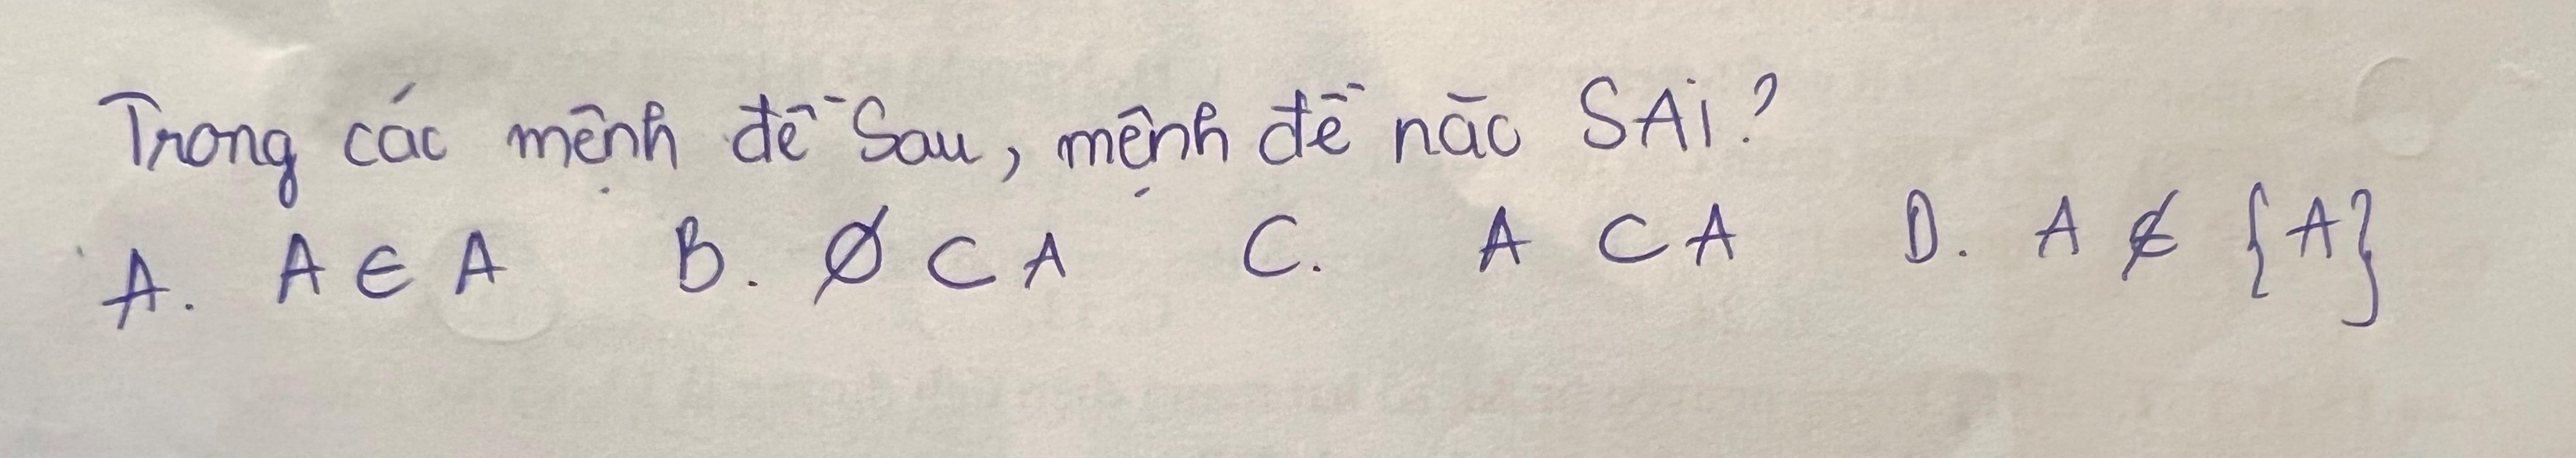 Trong các mệnh đề sau, mệnh đề nào SAi?
A. A ∈ A B. Ø ⊂ A C. A ⊂ A D. A ∉ {A}